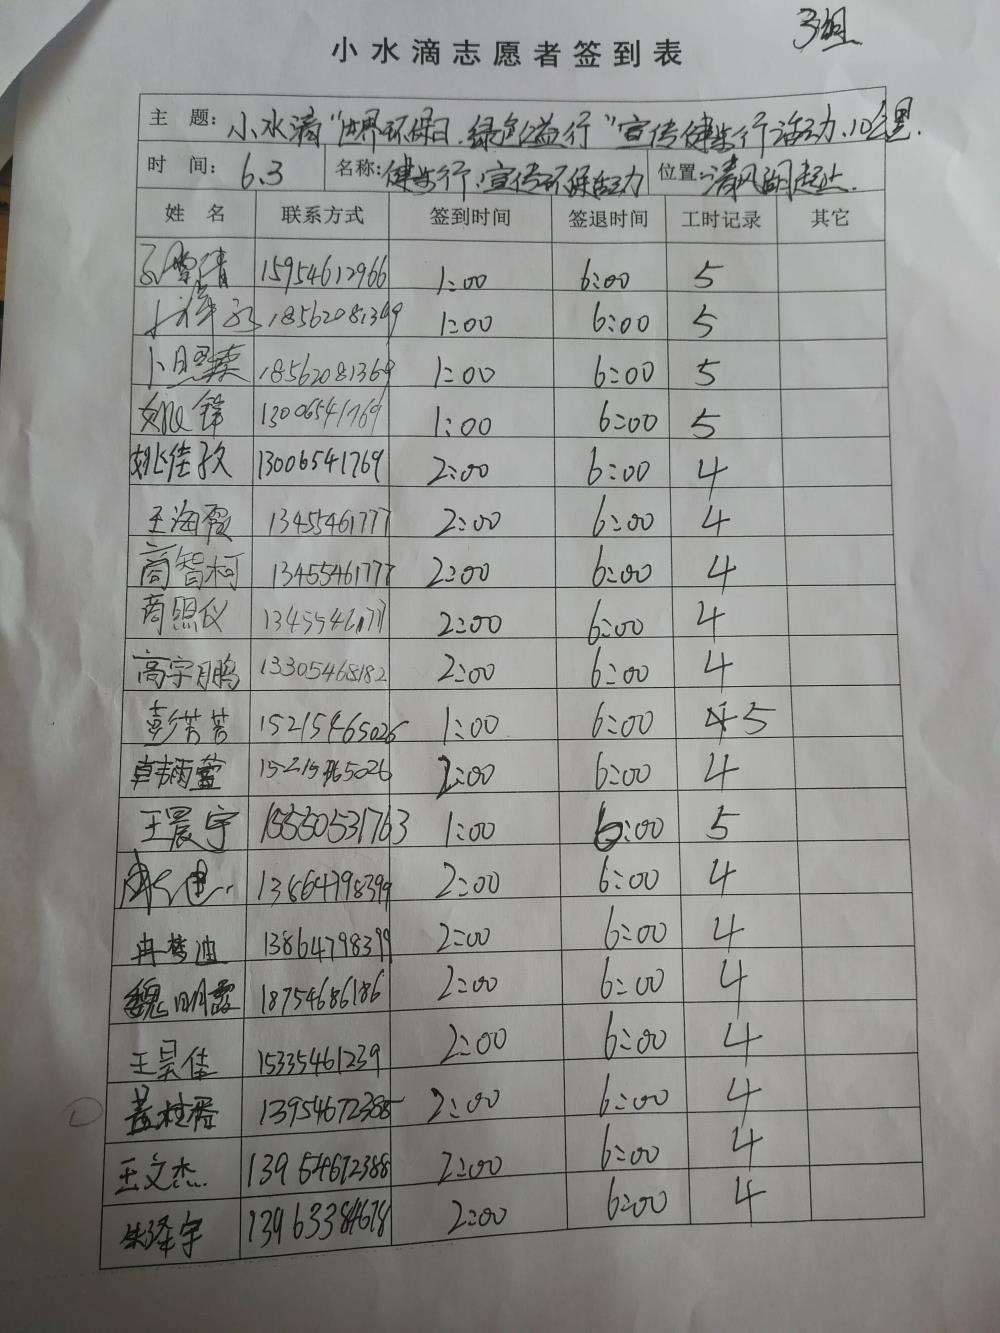 3组
小水滴志愿者签到表
主 题: 小水滴"世界环保日.绿色公益行"宣传健步行活动.10公里.
时 间: 6.3 名称: 健步行.宣传环保活动 位置: 清风湖起止.
姓 名 联系方式 签到时间 签退时间 工时记录 其它
15954612966 1:00 6:00 5
18562081369 1:00 6:00 5
卜照森 18562081369 1:00 6:00 5
姚锋 13006541769 1:00 6:00 5
姚佳孜 13006541769 2:00 6:00 4
王海霞 13455461777 2:00 6:00 4
商智柯 13455461777 2:00 6:00 4
商照仪 2:00 6:00 4
高宇鹏 13305468182 2:00 6:00 4
彭芳芳 15215465026 1:00 6:00 5
15215465026 2:00 6:00 4
王晨宇 15550531763 1:00 6:00 5
13864798399 2:00 6:00 4
冉梦迪 13864798399 2:00 6:00 4
魏明霞 18754686186 2:00 6:00 4
王昊佳 15335461239 2:00 6:00 4
2:00 6:00 4
王文杰 13954672388 2:00 6:00 4
朱泽宇 13963384678 2:00 6:00 4